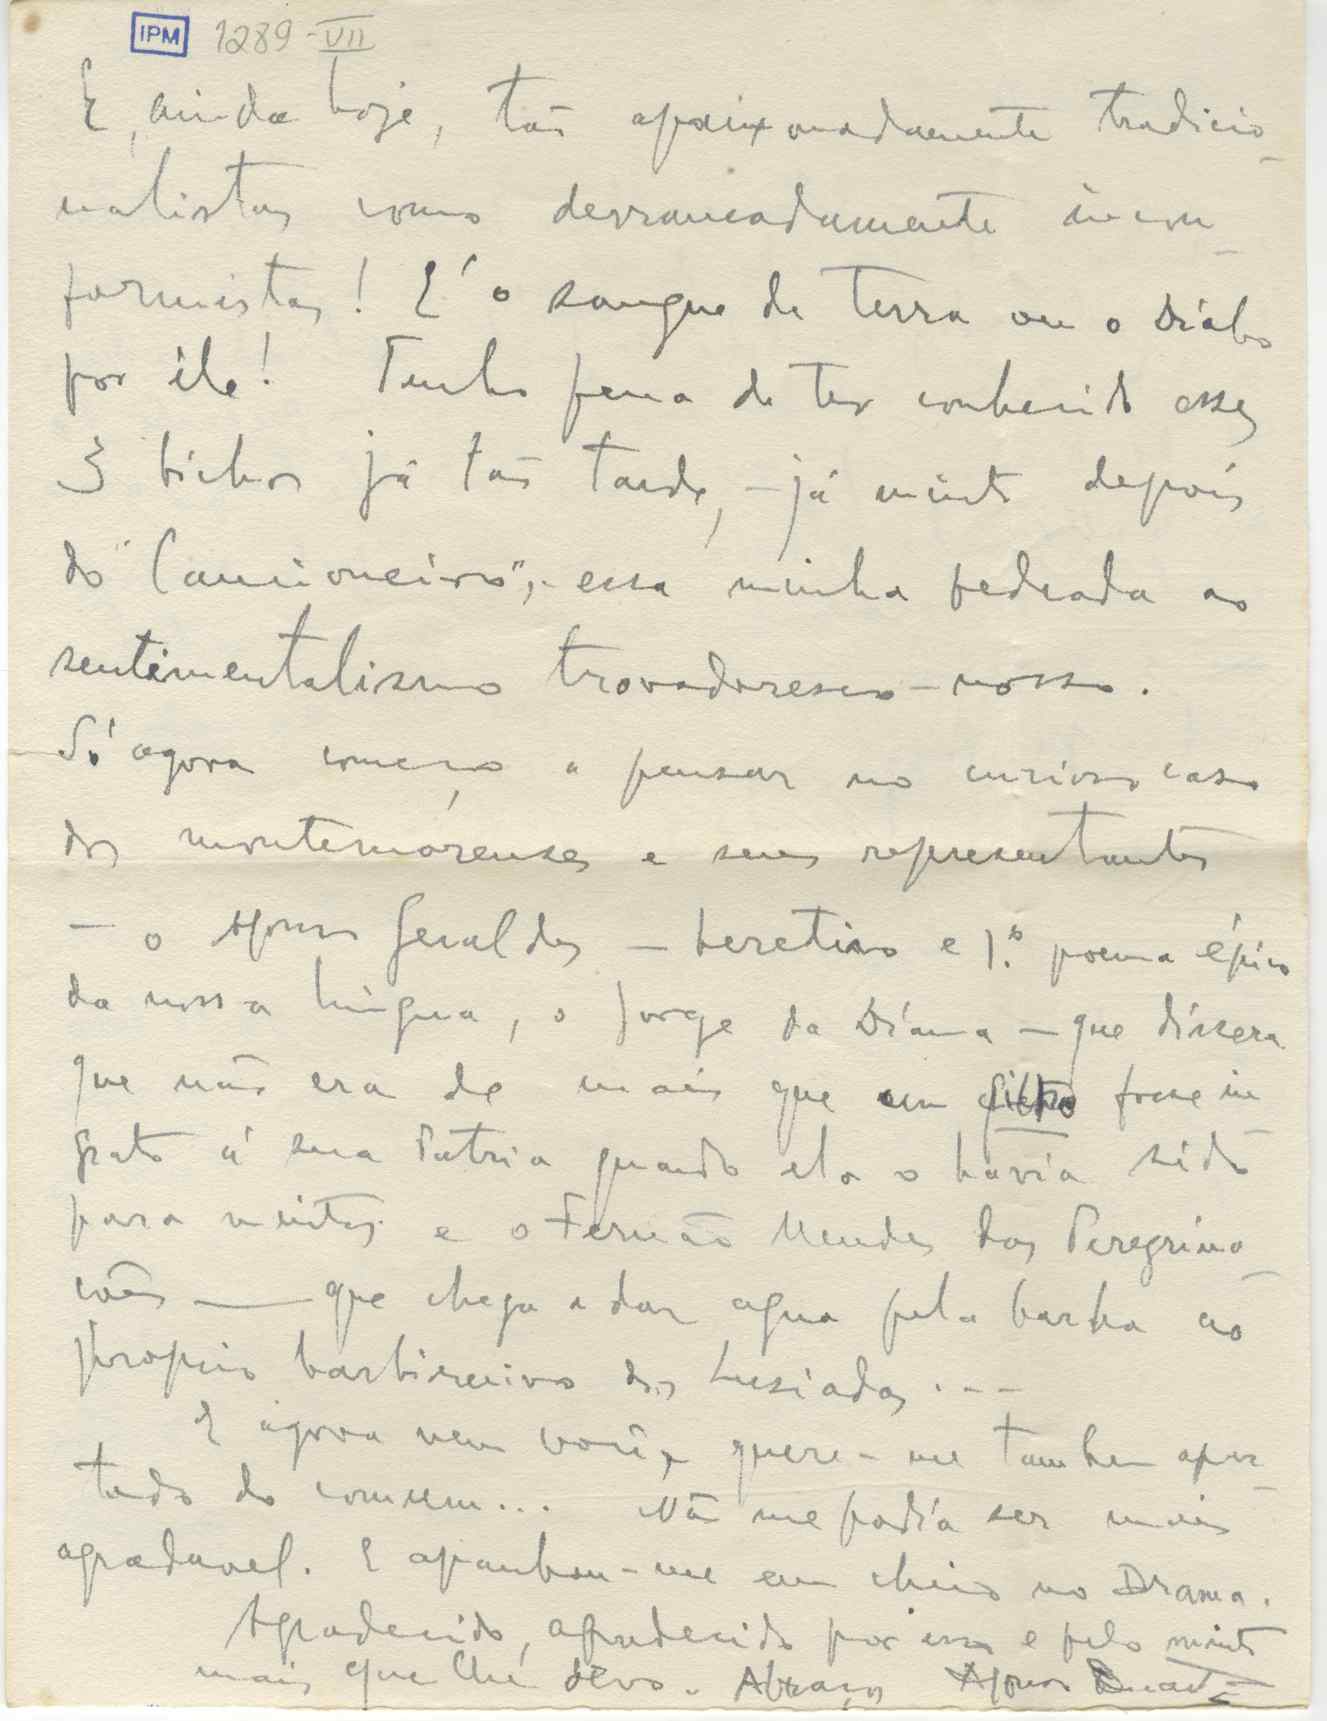 IPM 1289-VII
E, ainda hoje, tão apaixonadamente tradicio-
nalistas como derrancadamente incon-
formistas! E' o sangue da Terra ou o Diabo
por êle! Tenho pena de ter conhecido esses
3 bichos já tão tarde, - já muito depois
do "Cancioneiro", - essa minha pedrada ao
sentimentalismo trovadoresco-nosso.
Só agora começo a pensar no curioso caso
dos montemórenses e seus representantes
- o Afonso Geraldes - heretico e 1.º poema épico
da nossa lingua, o Jorge da Diana - que dissera
que não era de mais que um filho fosse in
grato á sua Patria quando ela o havia sido
para muitos e o Fernão Mendes das Peregrina-
ções — que chega a dar agua pela barba ao
proprio barbirruivo dos Lusiadas...
E agora vem você, quere-me tambem apar-
tado do comum... Não me podia ser mais
agradavel. E apanhou-me em cheio no Drama.
Agradecido, agradecido por isso e pelo muito
mais que lhe devo. Abraços Afonso Duarte